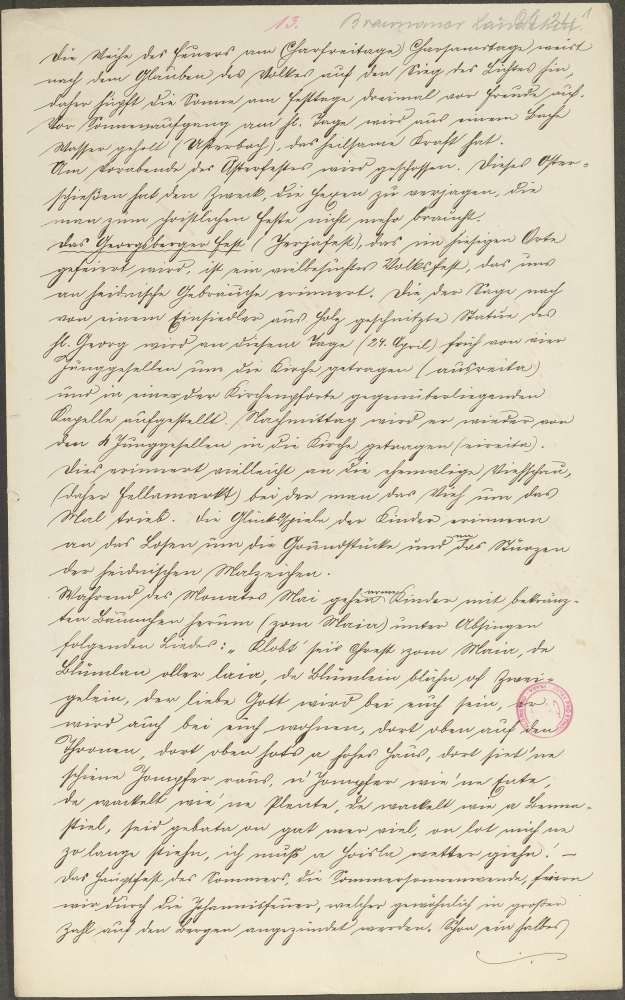 13. Braunauer Ländchen 1
Die Weihe des Feuers am Charfreitage (Charsamstage) weist
nach dem Glauben des Volkes auf den Sieg des Lichtes hin,
daher hüpft die Sonne am Festtage dreimal vor Freude auf.
Vor Sonnenaufgang am hl. Tage wird aus einem Bache
Wasser geholt (Osterbach), das heilsame Kraft hat.
Am Vorabende des Osterfestes wird geschossen. Dieses Oster-
schießen hat den Zweck, die Hexen zu verjagen, die
man zum christlichen Feste nicht mehr braucht.
Das Georgsberger Fest (Jerjafest), das im hiesigen Orte
gefeiert wird, ist ein vielbesuchtes Volksfest, das uns
an heidnische Gebräuche erinnert. Die, der Sage nach
von einem Einsiedler aus Holz geschnitzte Statue des
hl. Georg wird an diesem Tage (24. April) früh von vier
Junggesellen um die Kirche getragen (ausreita)
und in einer, der Kirchenpforte gegenüberliegenden
Kapelle aufgestellt. Nachmittag wird er wieder von
den 4 Junggesellen in die Kirche getragen (eireita).
Dies erinnert vielleicht an die ehemalige Viehschau,
(daher Fellamarkt) bei der man das Vieh um das
Mal trieb. Die Glücksspiele der Kinder erinnern
an das Losen um die Grundstücke und um das Stürzen
der heidnischen Malzeichen.
Während des Monates Mai gehen arme Kinder mit bekränz-
ten Bäumchen herum (zom Maia) unter Absingen
folgenden Liedes: „Klobt sei's Chrest zom Maia, de
Blümlan oller laia, de Blümlein blühn of Zwei-
gelein, der liebe Gott wird bei euch sein, er
wird auch bei euch wohnen, dort oben auf den
Thronen, dort oben hots a hohes Haus, dort siet 'ne
schiene Jompfer raus, 'n Jompfer wie 'ne Ente,
de wackelt wie 'ne Plente, de wackelt wie a Benna-
stiel, seid gebata on gat mer viel, on lot mich ne
zo lange stiehn, ich muß a Hoisla wetter giehn! –
Das Hauptfest des Sommers, die Sommersonnenwende, feiern
wir durch die Johannisfeuer, welcher gewöhnlich in großer
Zahl auf den Bergen angezündet werden. Schon ein halbes